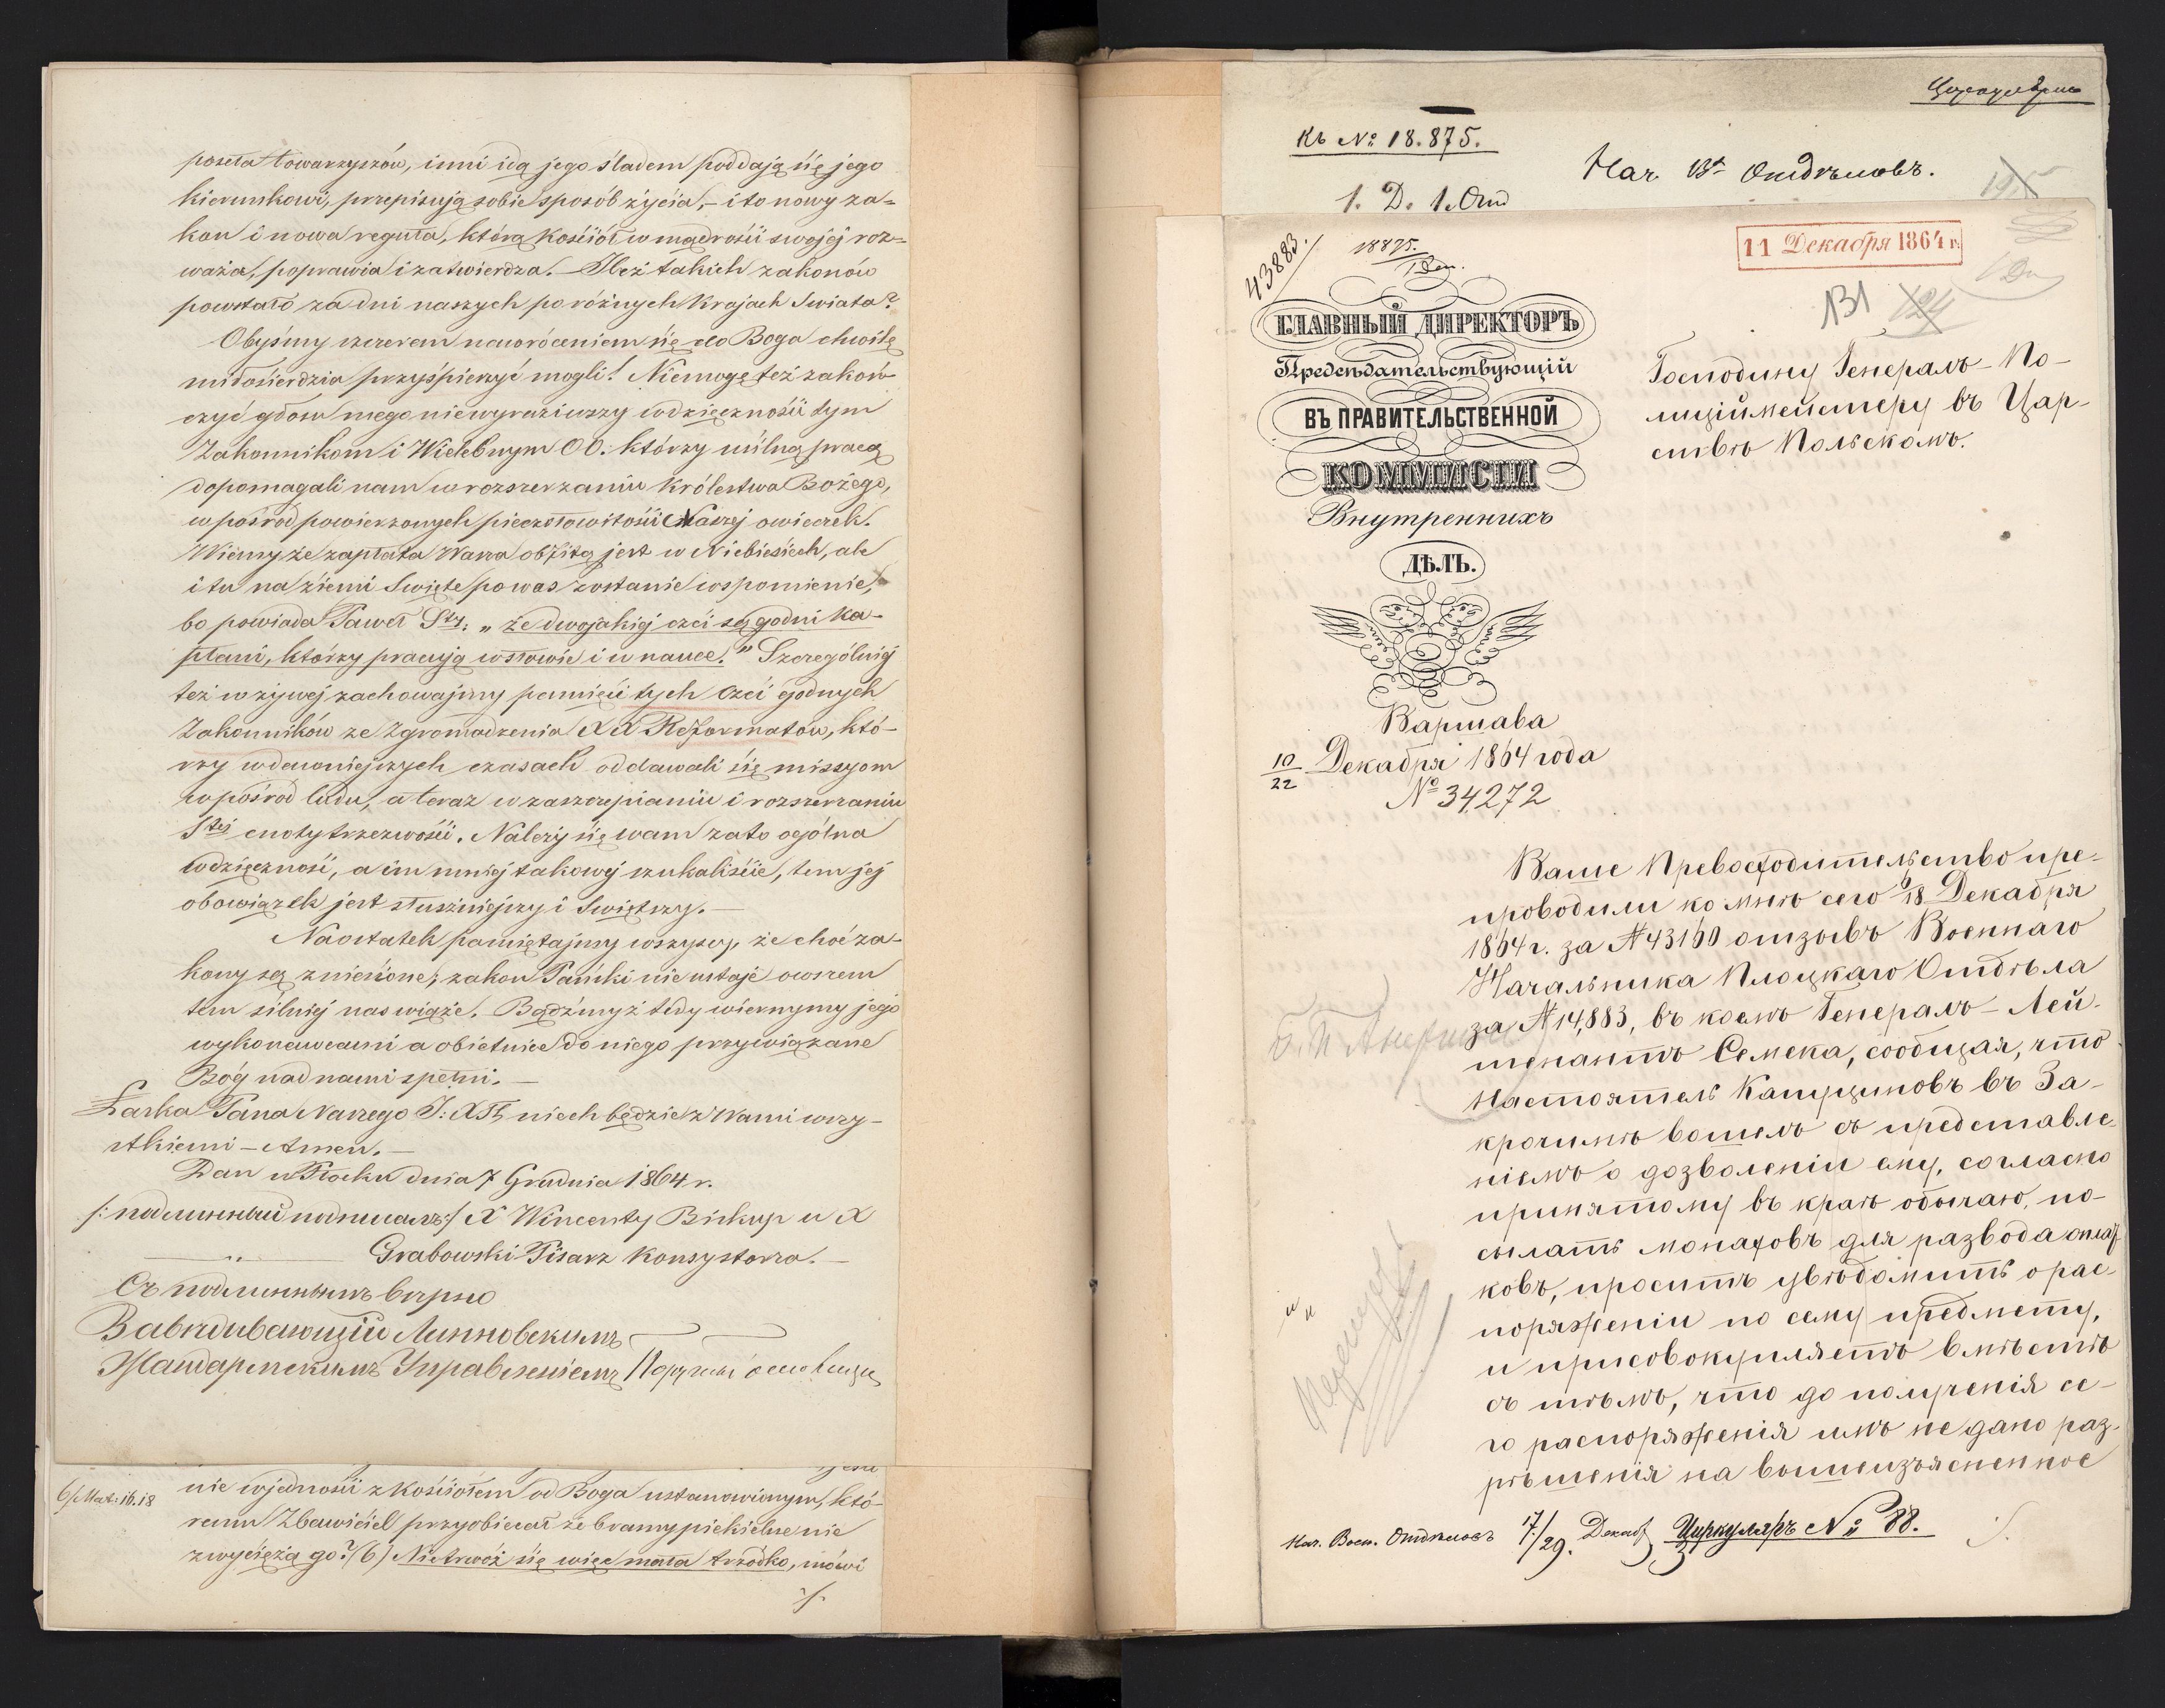 poseła towarzyszów, inni idą jego śladem poddają się jego
kierunkowi, przepisują sobie sposób życia, – i to nowy za-
kon i nowa reguła, którą Kościół w mądrości swojej roz-
waża, poprawia i zatwierdza. – Ileż takich zakonów
powstało za dni naszych po różnych krajach Swiata?
Obyśmy szczerem nawróceniem się do Boga chwilę
miłosierdzia przyśpieszyć mogli! Niemogę też zakoń-
czyć głosu mego niewyraziwszy wdzięczności tym
Zakonnikom i Wielebnym OO. którzy usilną pracą
dopomagali nam w rozszerzaniu Królestwa Bożego,
wpośród powierzonych pieczołowitości Naszej owieczek.
Wiemy że zapłata Wasza obfitą jest w Niebiesiech, ale
i tu na ziemi Święte po was zostanie wspomienie,
bo powiada Paweł Sty: „że dwojakiej czci są godni ka-
płani, którzy pracują w słowie i w nauce." Szczególniej
też w żywej zachowajmy pamięci tych czci godnych
Zakonników ze Zgromadzenia XX Reformatów, któ-
rzy w dawniejszych czasach oddawali się missyom
wpośród ludu, a teraz w zaszczepianiu i rozszerzaniu
Stej cnoty trzezwości. Należy się wam za to ogólna
wdzięczność, a im mniej takowej szukaliście, tem jej
obowiązek jest słuszniejszy i Świętszy. –
Naostatek pamiętajmy wszyscy, że choć za-
kony są zniesione, zakon Pański nie ustaje owszem
tem silniej nas wiąże. Bądźmyż tedy wiernymy jego
wykonawcami a obietnice do niego przywiązane
Bóg nad nami spełni. –
Łaska Pana Naszego J: X Pś, niech będzie z Wami wszy-
stkiemi – Amen. –
Dan w Płocku dnia 7 Grudnia 1864 r.
/: подлинный подписалъ :/ X Wincenty Biskup
Grabowski Pisarz Konsystorza. –
Съ подлиннымъ верно
Завѣдывающій Липновскимъ
Жандармскимъ Управленіемъ
6/ Mat: 16.18
nie wjedności z Kościołem od Boga ustanowionym, któ-
remu Zbawiciel przyobiecał że bramy piekielne nie
zwyciężą go? (6) Nietrwóż się więc mała trzódko, mówi
Циркулярно
Къ № 18.875.
Нач. Вн Отдѣловъ.
1. Д. 1. Отд
43883.
18875.
11 Декабря 1864 г.
131
124
ГЛАВНЫЙ ДИРЕКТОРЪ
Предсѣдательствующій
ВЪ ПРАВИТЕЛЬСТВЕННОЙ
КОММИСІИ
Внутреннихъ
ДѢЛЪ.
Варшава
10/22 Декабря 1864 года
№ 34,272
Господину Генералъ-По-
лиціймейстеру въ Цар-
ствѣ Польскомъ.
Ваше Превосходительство пре-
проводили ко мнѣ сего 6/18 Декабря
1864 г. за № 43160 отзывъ Военнаго
Начальника Плоцкаго Отдѣла
за № 14,883, въ коемъ Генералъ-Лей-
тенантъ Семека, сообщая, что
настоятель Капуциновъ въ За-
крочимѣ вошелъ съ представле-
ніемъ о дозволеніи ему, согласно
принятому въ краѣ обычаю, по-
сылать монаховъ для развода оплат-
ковъ, проситъ увѣдомить о рас-
поряженіи по сему предмету,
и присовокупляетъ вмѣстѣ
съ тѣмъ, что до полученія се-
го распоряженія имъ не дано раз-
рѣшенія на вышеизъясненное
Нач. Воен. Отдѣловъ 17/29. Декаб. Циркуляръ № 88.